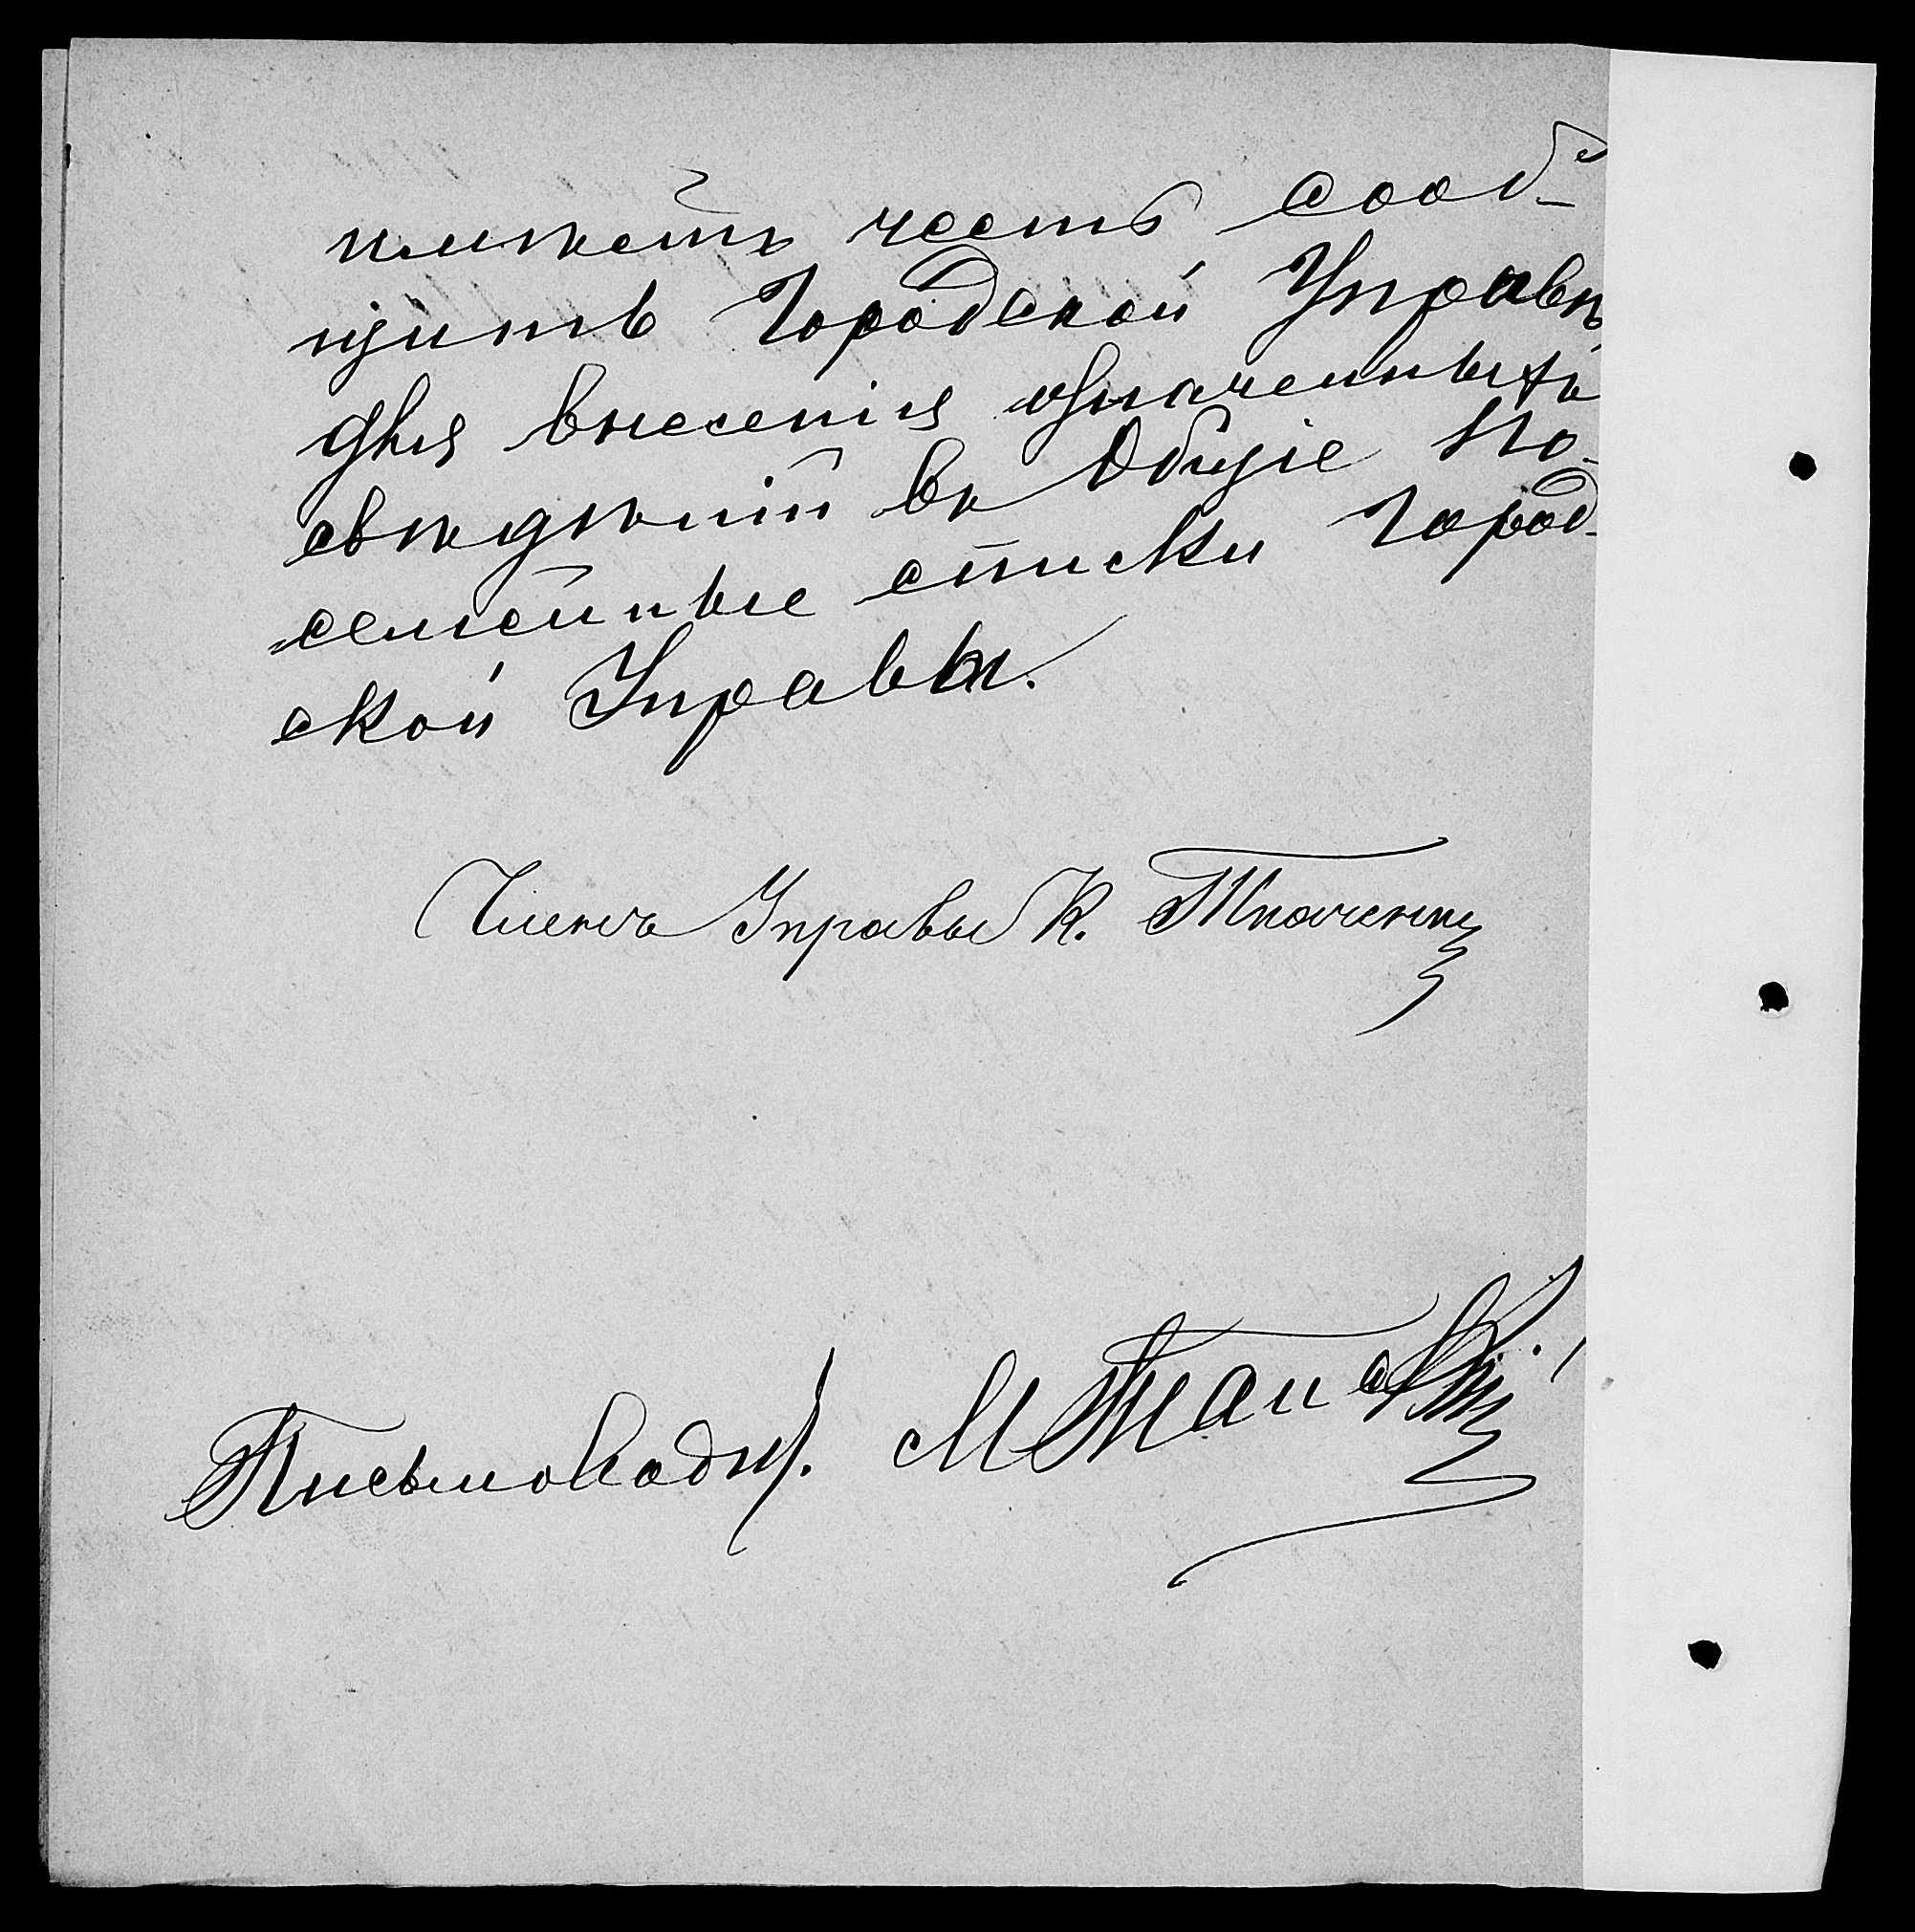 имѣетъ честь сооб-
щить Городской Управѣ
для внесенія означенныхъ
свѣдѣній въ Общіе По-
семейные списки Город-
ской Управы.
Членъ Управы К. Ткаченко
Письмоводит. М.